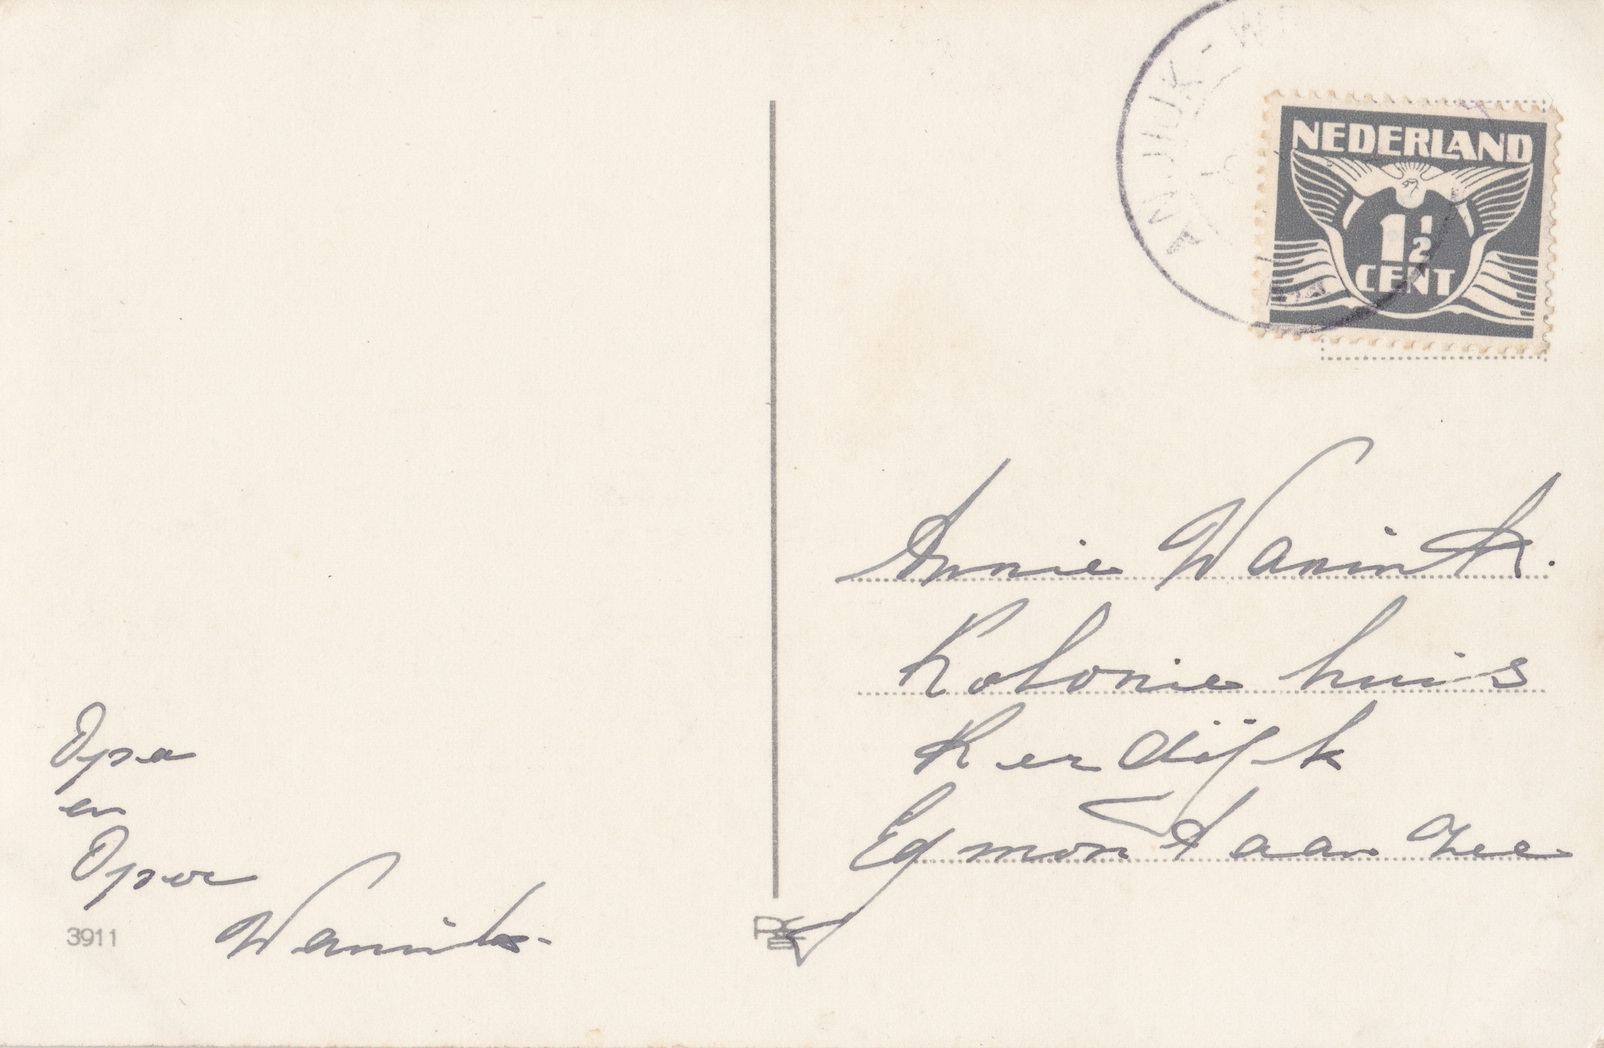 NEDERLAND
1½
CENT
Annie Wanink.
Kolonie huis
Kerdijk
Egmond aan Zee
Opa
en
Opoe
Wanink.
3911